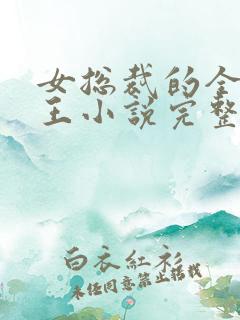 女总裁的全
王小说完整
白衣红衫
未经同意禁止搭载